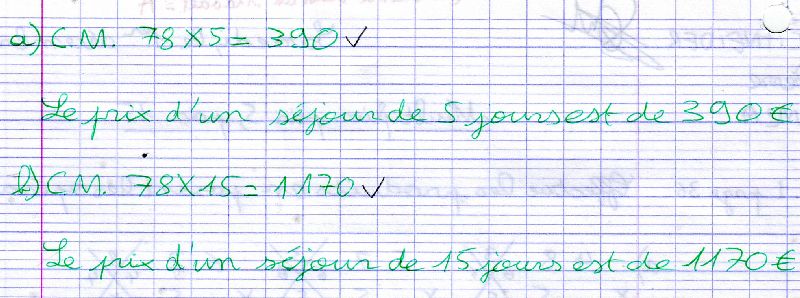 a) C.M. 78 X 5 = 390 ✓
Le prix d'un séjour de 5 jours est de 390 €
b) C.M. 78 X 15 = 1170 ✓
Le prix d'un séjour de 15 jours est de 1170 €